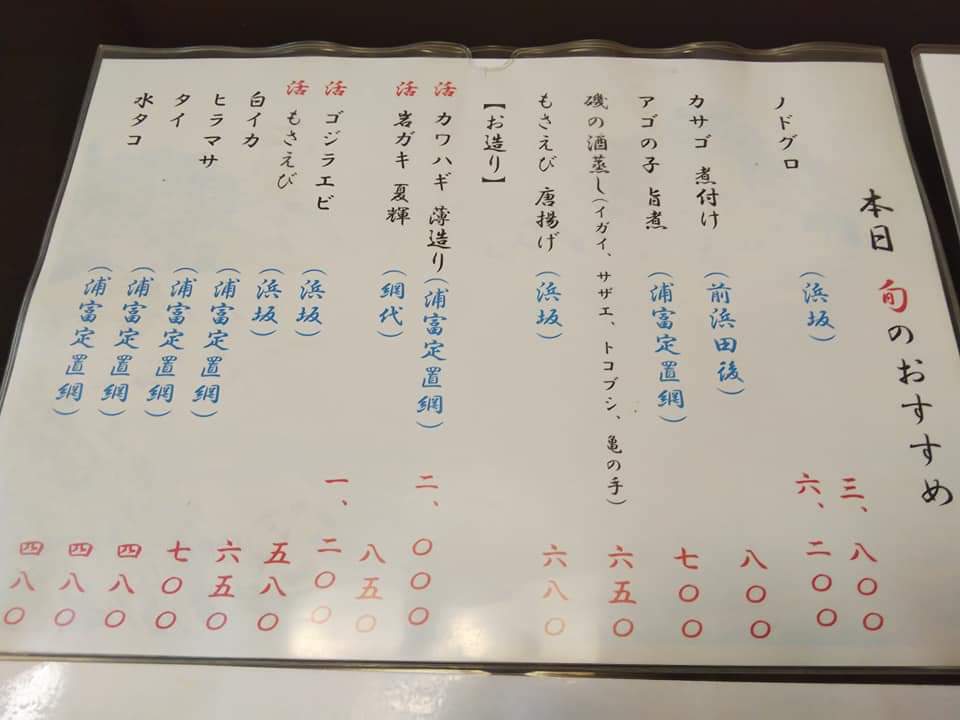 本日 旬のおすすめ
ノドグロ (浜坂) 三、八〇〇
六、二〇〇
カサゴ 煮付け (前浜田後) 八〇〇
アゴの子 旨煮 (浦富定置網) 七〇〇
磯の酒蒸し(イガイ、サザエ、トコブシ、亀の手) 六五〇
もさえび 唐揚げ (浜坂) 六八〇
【お造り】
活 カワハギ 薄造り (浦富定置網) 二、〇〇〇
活 岩ガキ 夏輝 (網代) 八五〇
一、二〇〇
活 ゴジラエビ (浜坂) 五八〇
活 もさえび (浜坂) 六五〇
白イカ (浦富定置網) 七〇〇
ヒラマサ (浦富定置網) 四八〇
タイ (浦富定置網) 四八〇
水タコ (浦富定置網) 四八〇